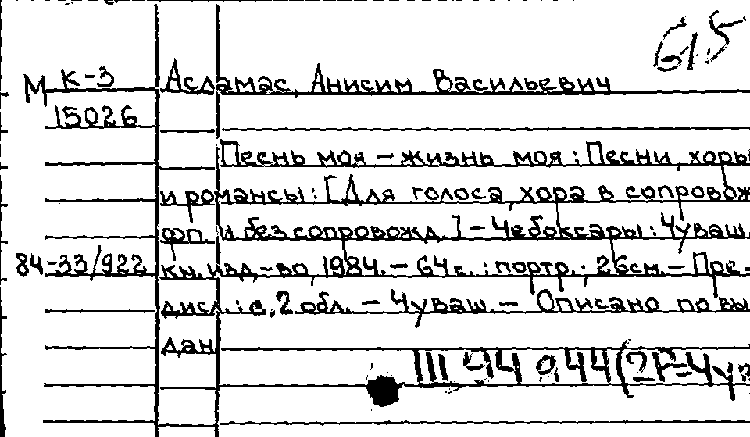 615
М К-3 Асламас, Анисим Васильевич
15026
Песнь моя – жизнь моя : Песни, хоры
и романсы : [Для голоса, хора в сопровож
фп. и без сопровожд.] – Чебоксары : Чуваш.
84-33/922 кн. изд-во, 1984. – 64 с. : портр. ; 26 см. – Пре-
дисл. : с. 2 обл. – Чуваш. – Описано по вы
дан